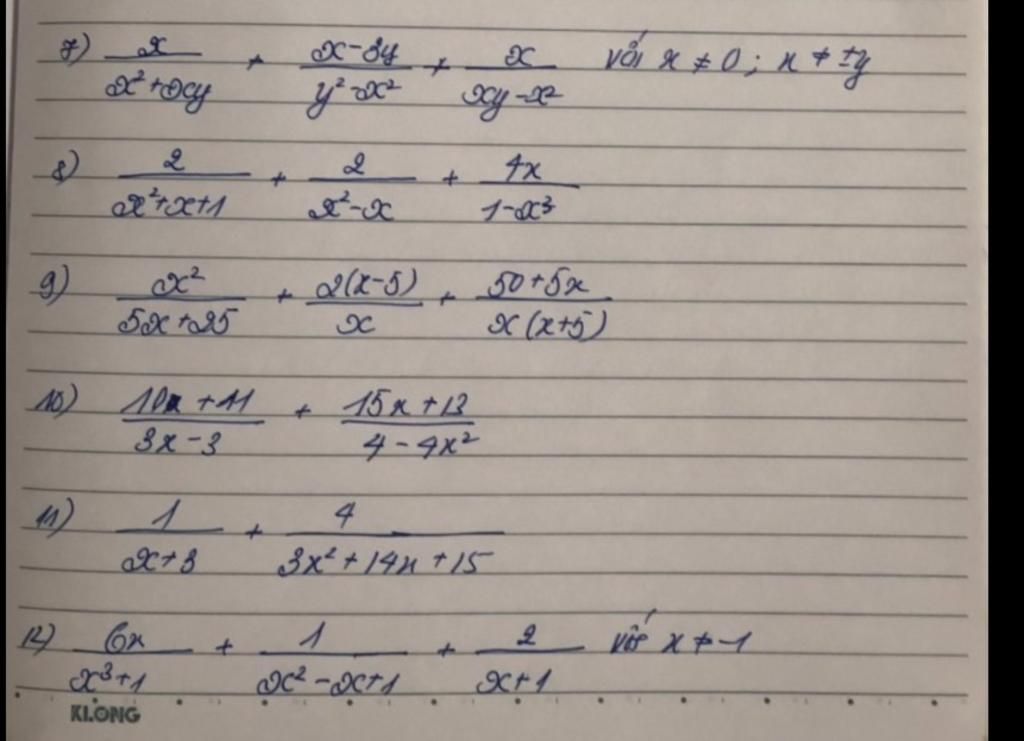 7) x/(x²+xy) + (x-3y)/(y²-x²) + x/(xy-x²) với x ≠ 0; x ≠ ±y
8) 2/(x²+x+1) + 2/(x²-x) + 4x/(1-x³)
9) x²/(5x+25) + 2(x-5)/x + (50+5x)/(x(x+5))
10) (10x+11)/(3x-3) + (15x+13)/(4-4x²)
11) 1/(x+3) + 4/(3x²+14x+15)
12) 6x/(x³+1) + 1/(x²-x+1) + 2/(x+1) với x ≠ -1
KLONG